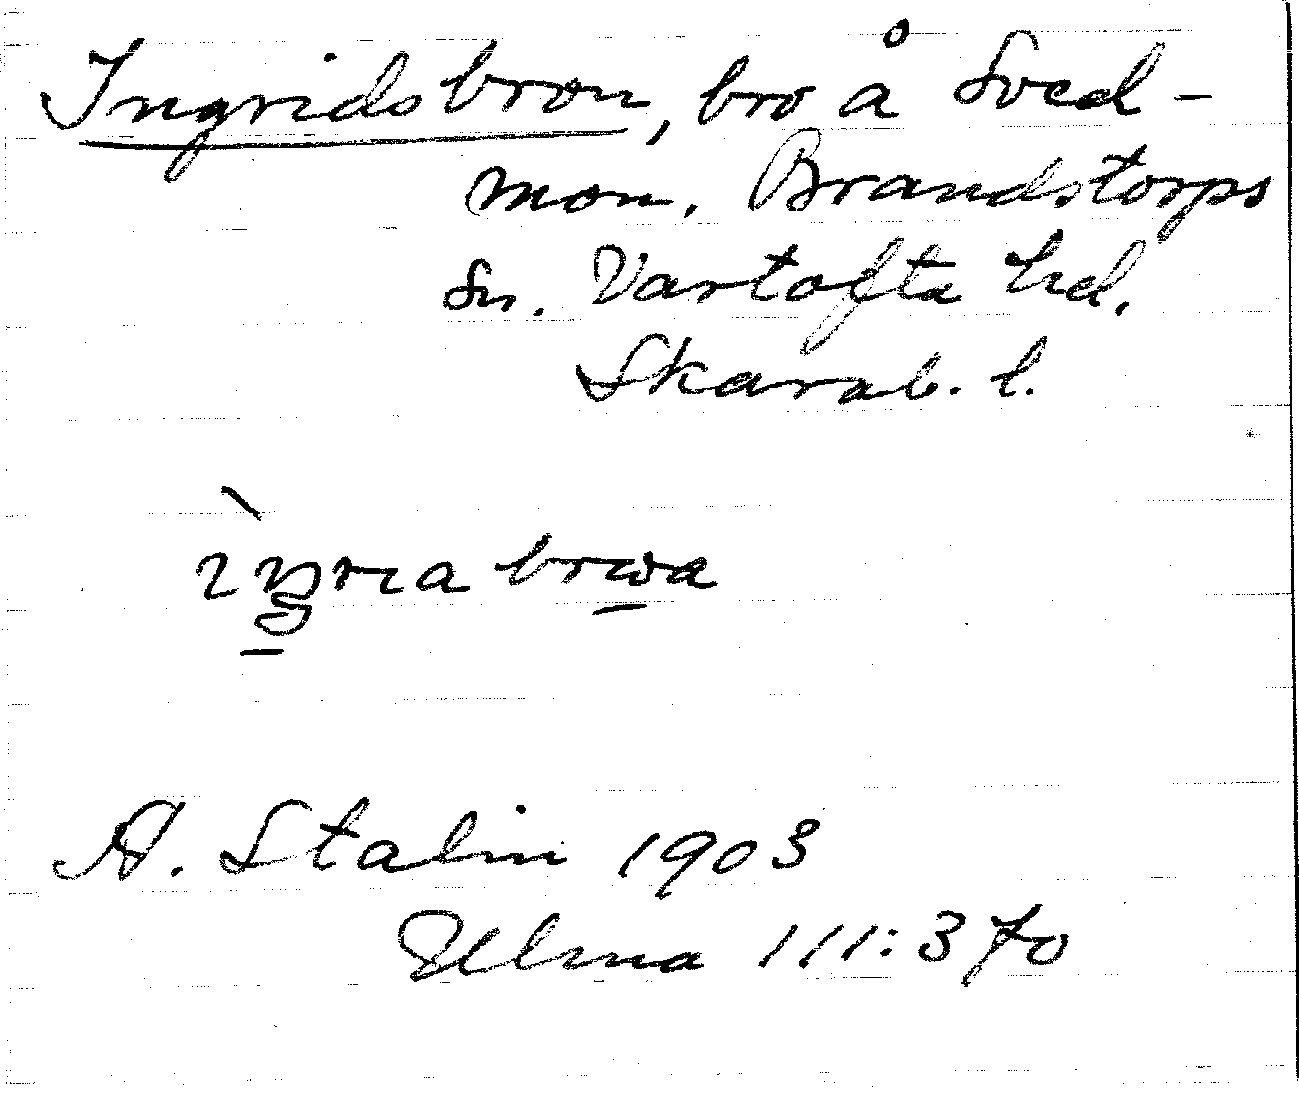 Ingridsbron, bro å Sved-
mon. Brandstorps
sn. Vartofta hd.
Skarab. l.
A. Stalin 1903
Ulma 111:370